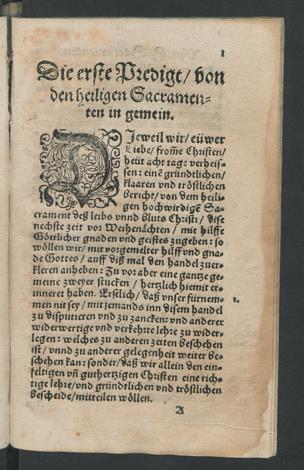 1
Die erste Predigt/ von
den heiligen Sacramen-
ten in gemein.
DJeweil wir/ eüwer
Liebe/ from̃e Christen/
heüt acht tag: verheis-
sen: einẽ gründtlichen/
klaaren vnd tröstlichen
bericht/ von dem heili-
gen hochwirdigẽ Sa-
crament deß leibs vnnd bluts Christi/ dise
nechste zeit vor Weihenächten/ mit hilffe
Göttlicher gnaden vnd geistes zugeben: so
wöllen wir/ mit vorgemelter hilff vnd gna-
de Gottes/ auff diß mal den handel zuer-
kleren anheben: Zu vor aber eine gantze ge-
meine zweyer stucken/ hertzlich hiemit er-
inneret haben. Erstlich/ daß vnser fürnem- 1.
men nit sey/ mit jemands inn disem handel
zu disputieren vnd zu zancken: vnd anderer
widerwertige vnd verkehrte lehre zu wider-
legen: welches zu anderen zeiten beschehen
ist/ vnnd zu anderer gelegenheit weiter be-
schehen kan: sonder/ daß wir allein den ein-
feltigen vñ guthertzigen Christen eine rich-
tige lehre/ vnd gründtlichen vnd tröstlichen
Bescheide/ mitteilen wöllen.
A